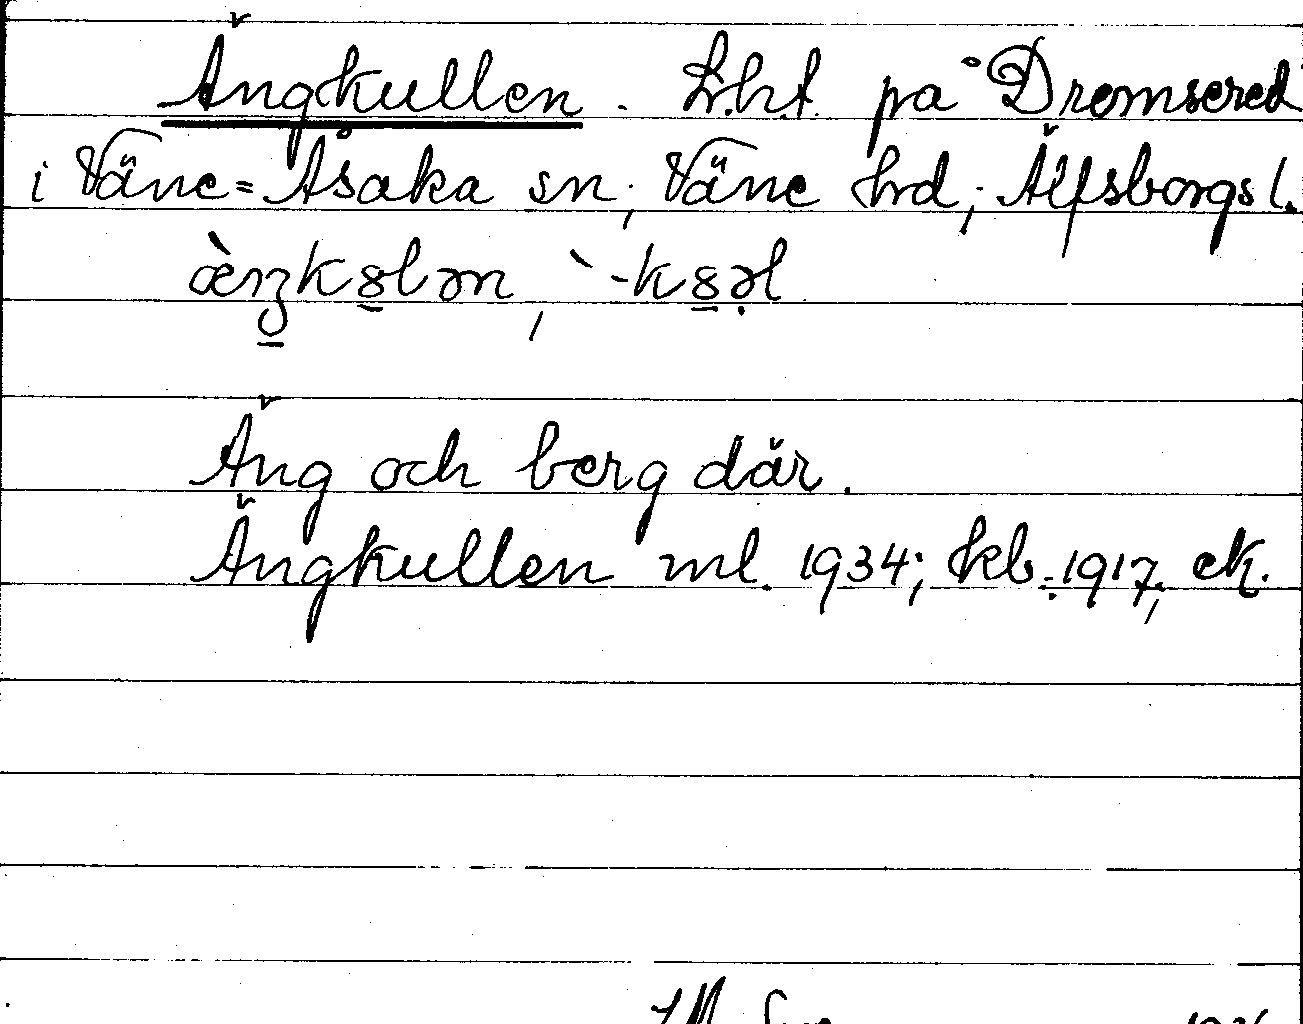 Ängkullen. Lht på Dremsered
i Väne-Åsaka sn, Väne hd, Älfsborgs l.
æ̀ŋkȣlən, `-kȣəl

Äng och berg där.
Ängkullen ml. 1934; kb. 1917, ek.